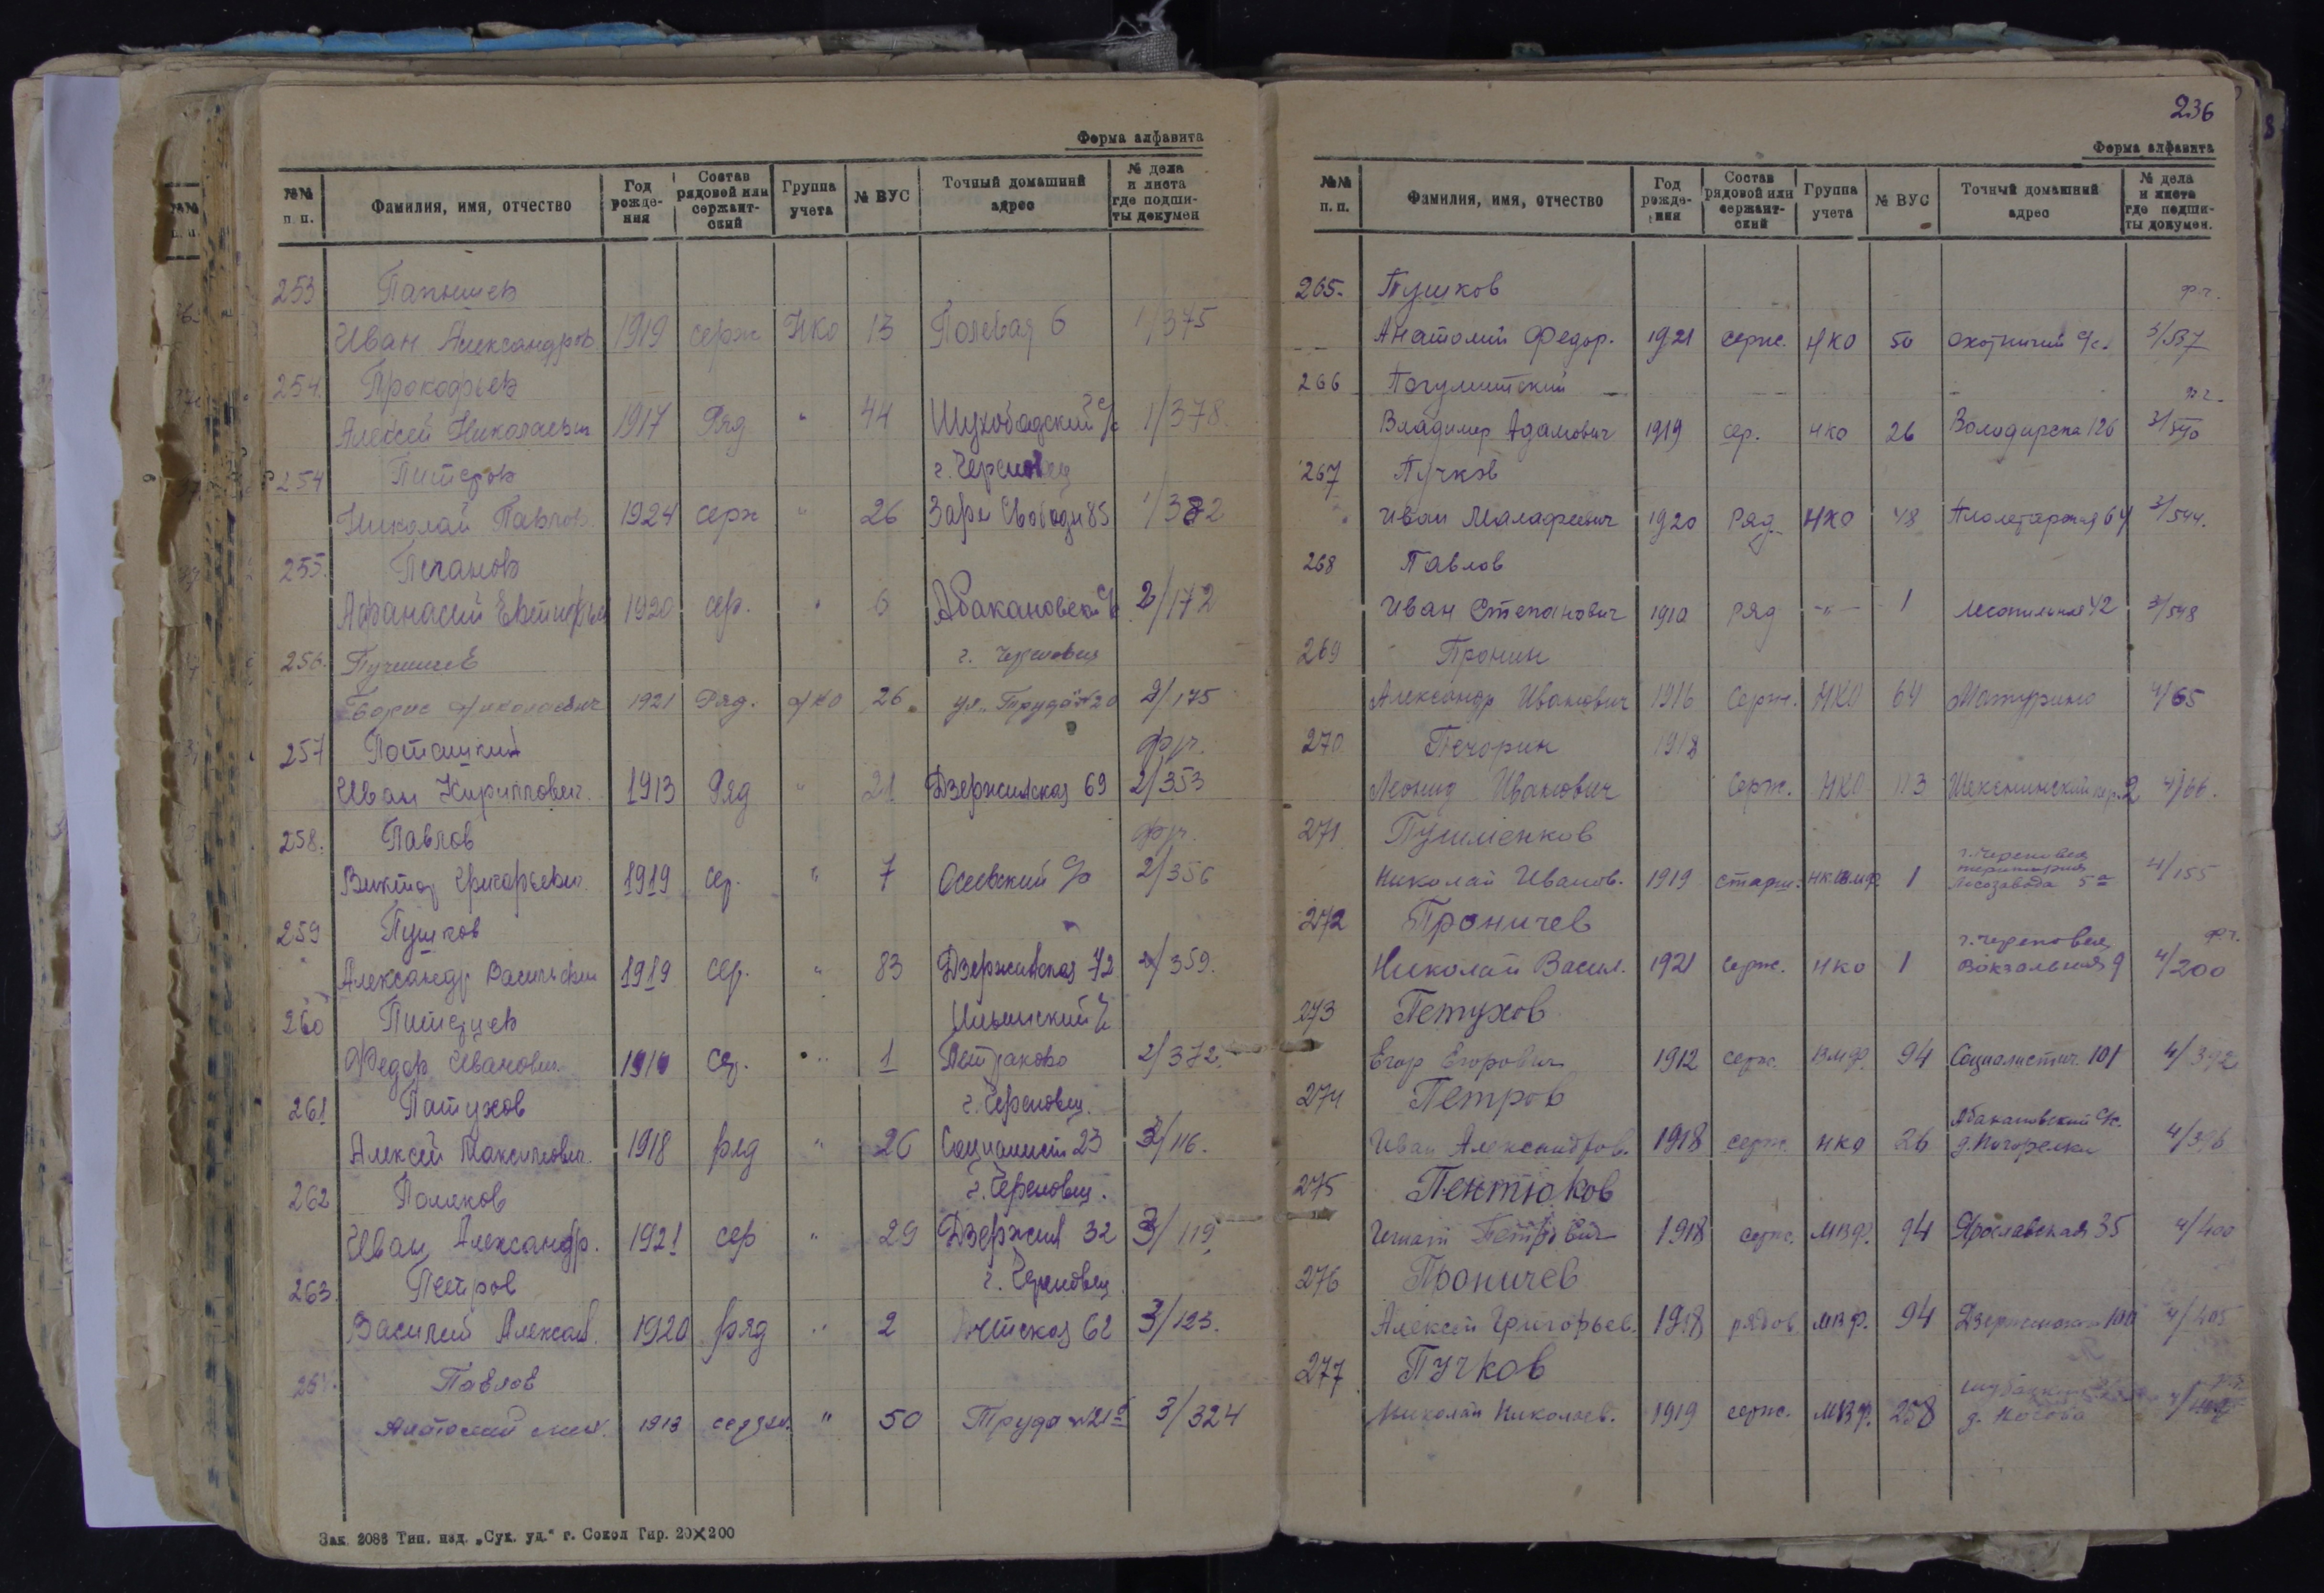 Форма алфавита
№№ п. п. Фамилия, имя, отчество Год рожде-ния Состав рядовой или сержант-ский Группа учета № ВУС Точный домашний адрес № дела и листа где подши-ты докумен
253
Иван Александров 1919 серж НКО 13 Полевая 6 1/375
254. Прокофьев
Алексей Николаевич 1917 Ряд " 44 Шухободский с/с 1/378.
254 Питеров г. Череповец
Николай Павлов. 1924 серж " 26 Зари Свободы 85 1/382
255. Печанов
Афанасий 1920 сер. " 6 Абакановский с/с 2/172
256. г. Череповец
Борис Николаевич 1921 Ряд. НКО 26 ул. Труда 20 2/175
257
Иван Кириллович. 1913 Ряд " 21 Дзержинская 69 2/353
258. Павлов
Виктор Григорьевич. 1919 сер. " 7 2/356
259 Пушков
Александр Васильевич 1919 сер. " 83 Дзержинская 72 2/359.
260
Федор Иванович. сер. " 1 2/372.
261 Патухов г. Череповец.
Алексей Максимович. 1918 ряд " 26 Социалист 23 3/116.
262 Поляков г. Череповец.
Иван Александр. 1921 сер " 29 Дзержин 32 3/119.
263. Петров г. Череповец
Василий Алексан. 1920 ряд " 2 62 3/123.
264. Павлов
1913 " 50 Труда 3/324
Зак 2086 Тип. изд. „Сук. уд." г. Сокол Тир. 20×200
236
Форма алфавита
№№ п. п. Фамилия, имя, отчество Год рожде-ния Состав рядовой или сержант-ский Группа учета № ВУС Точный домашний адрес № дела и листа где подши-ты докумен.
265. Пушков
Анатолий Федор. 1921 серж. НКО 50 Охотничий с/с. 3/537
266
Владимир Адамович 1919 сер. НКО 26 Володарска 126 3/540
267 Пучков
Иван Малафеевич 1920 Ряд. НКО 48 64 3/544.
268 Павлов
Иван Степанович 1910 ряд -"- 1 Лесопильная 42 3/548
269 Пронин
Александр Иванович 1916 Серж. НКО 64 Матурино 4/65
270 Печорин 1918
Леонид Иванович Серж. НКО 113 Шекснинский пер. 2 4/66.
271 Пушменков г. Череповец
Николай Иванов. 1919 старш. 1 Лесозавода 5а 4/155
272 Проничев г. Череповец
Николай Васил. 1921 серж. НКО 1 Вокзальная 9 4/200
273 Петухов
Егор Егорович 1912 серж. ВМФ. 94 Социалистич. 101 4/392
274 Петров Абакановский с/с.
Иван Александров. 1918 серж. НКО 26 д. Погорелки 4/396
275 Пентюков
Игнат Петрович 1918 серж. МВФ. 94 Ярославская 35 4/400
276 Проничев
Алексей Григорьев. 1918 рядов. МВФ. 94 Дзержинская 100 4/405
277 Пучков
Николай Николаев. 1919 серж. МВФ. 258